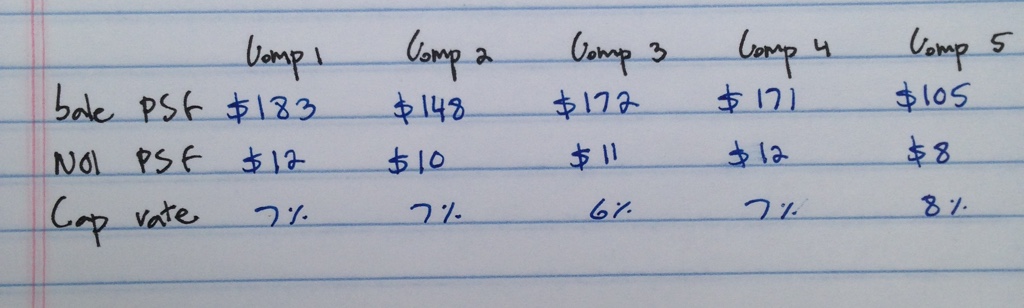 Comp 1 Comp 2 Comp 3 Comp 4 Comp 5
Sale PSF $183 $148 $172 $171 $105
NOI PSF $12 $10 $11 $12 $8
Cap rate 7% 7% 6% 7% 8%